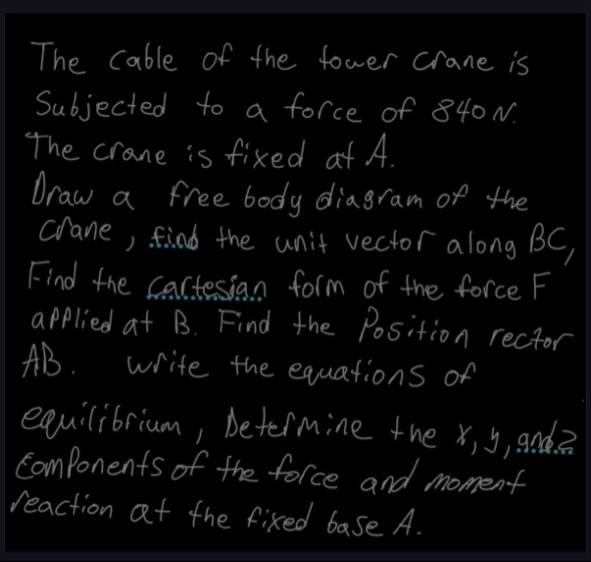 The cable of the tower crane is
Subjected to a force of 840 N.
The crane is fixed at A.
Draw a free body diagram of the
crane, find the unit vector along BC,
Find the cartesian form of the force F
applied at B. Find the Position rector
AB. write the equations of
equilibrium, Determine the x, y, and z
Components of the force and moment
reaction at the fixed base A.